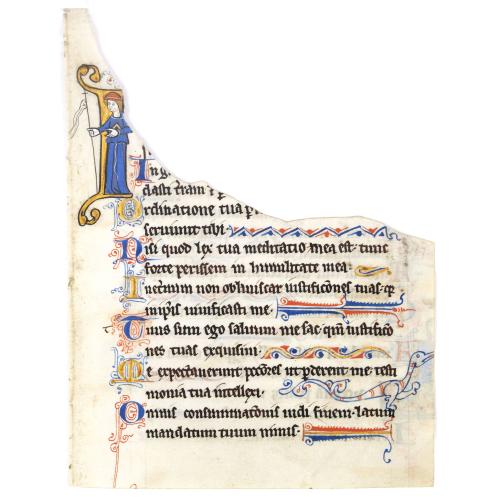 In g
dasti t̄ram ⁊ p
Ordinatione tua p
seruiunt tibi.
Nisi quod lex tua meditatio mea est. tunc
forte perissem in humilitate mea.
In et̄num non obliuiscar iustificōnes tuas. q̄
in ip̄is uiuificasti me.
Tuus sum ego saluum me fac. qm̄ iustifico
nes tuas exquisiui.
Me expectauerunt pccōres ut ꝑderent me. testi
monia tua intellexi.
Omnis consummatōnis uidi finem. latum
mandatum tuum nimis.